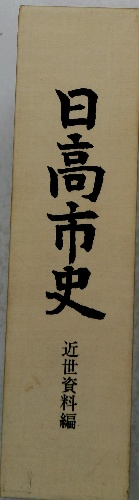 日高市史
近世資料編